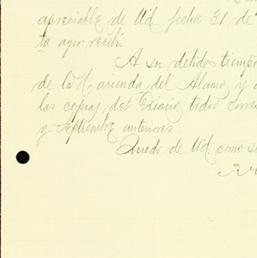 apreciable de Ud fecha 31 de
to ayer recibí.
A su debido tiempo
de la Hacienda del Alamo, y
las copias del Diario, todos corres
y Septiembre anteriores
Quedo de Ud como si